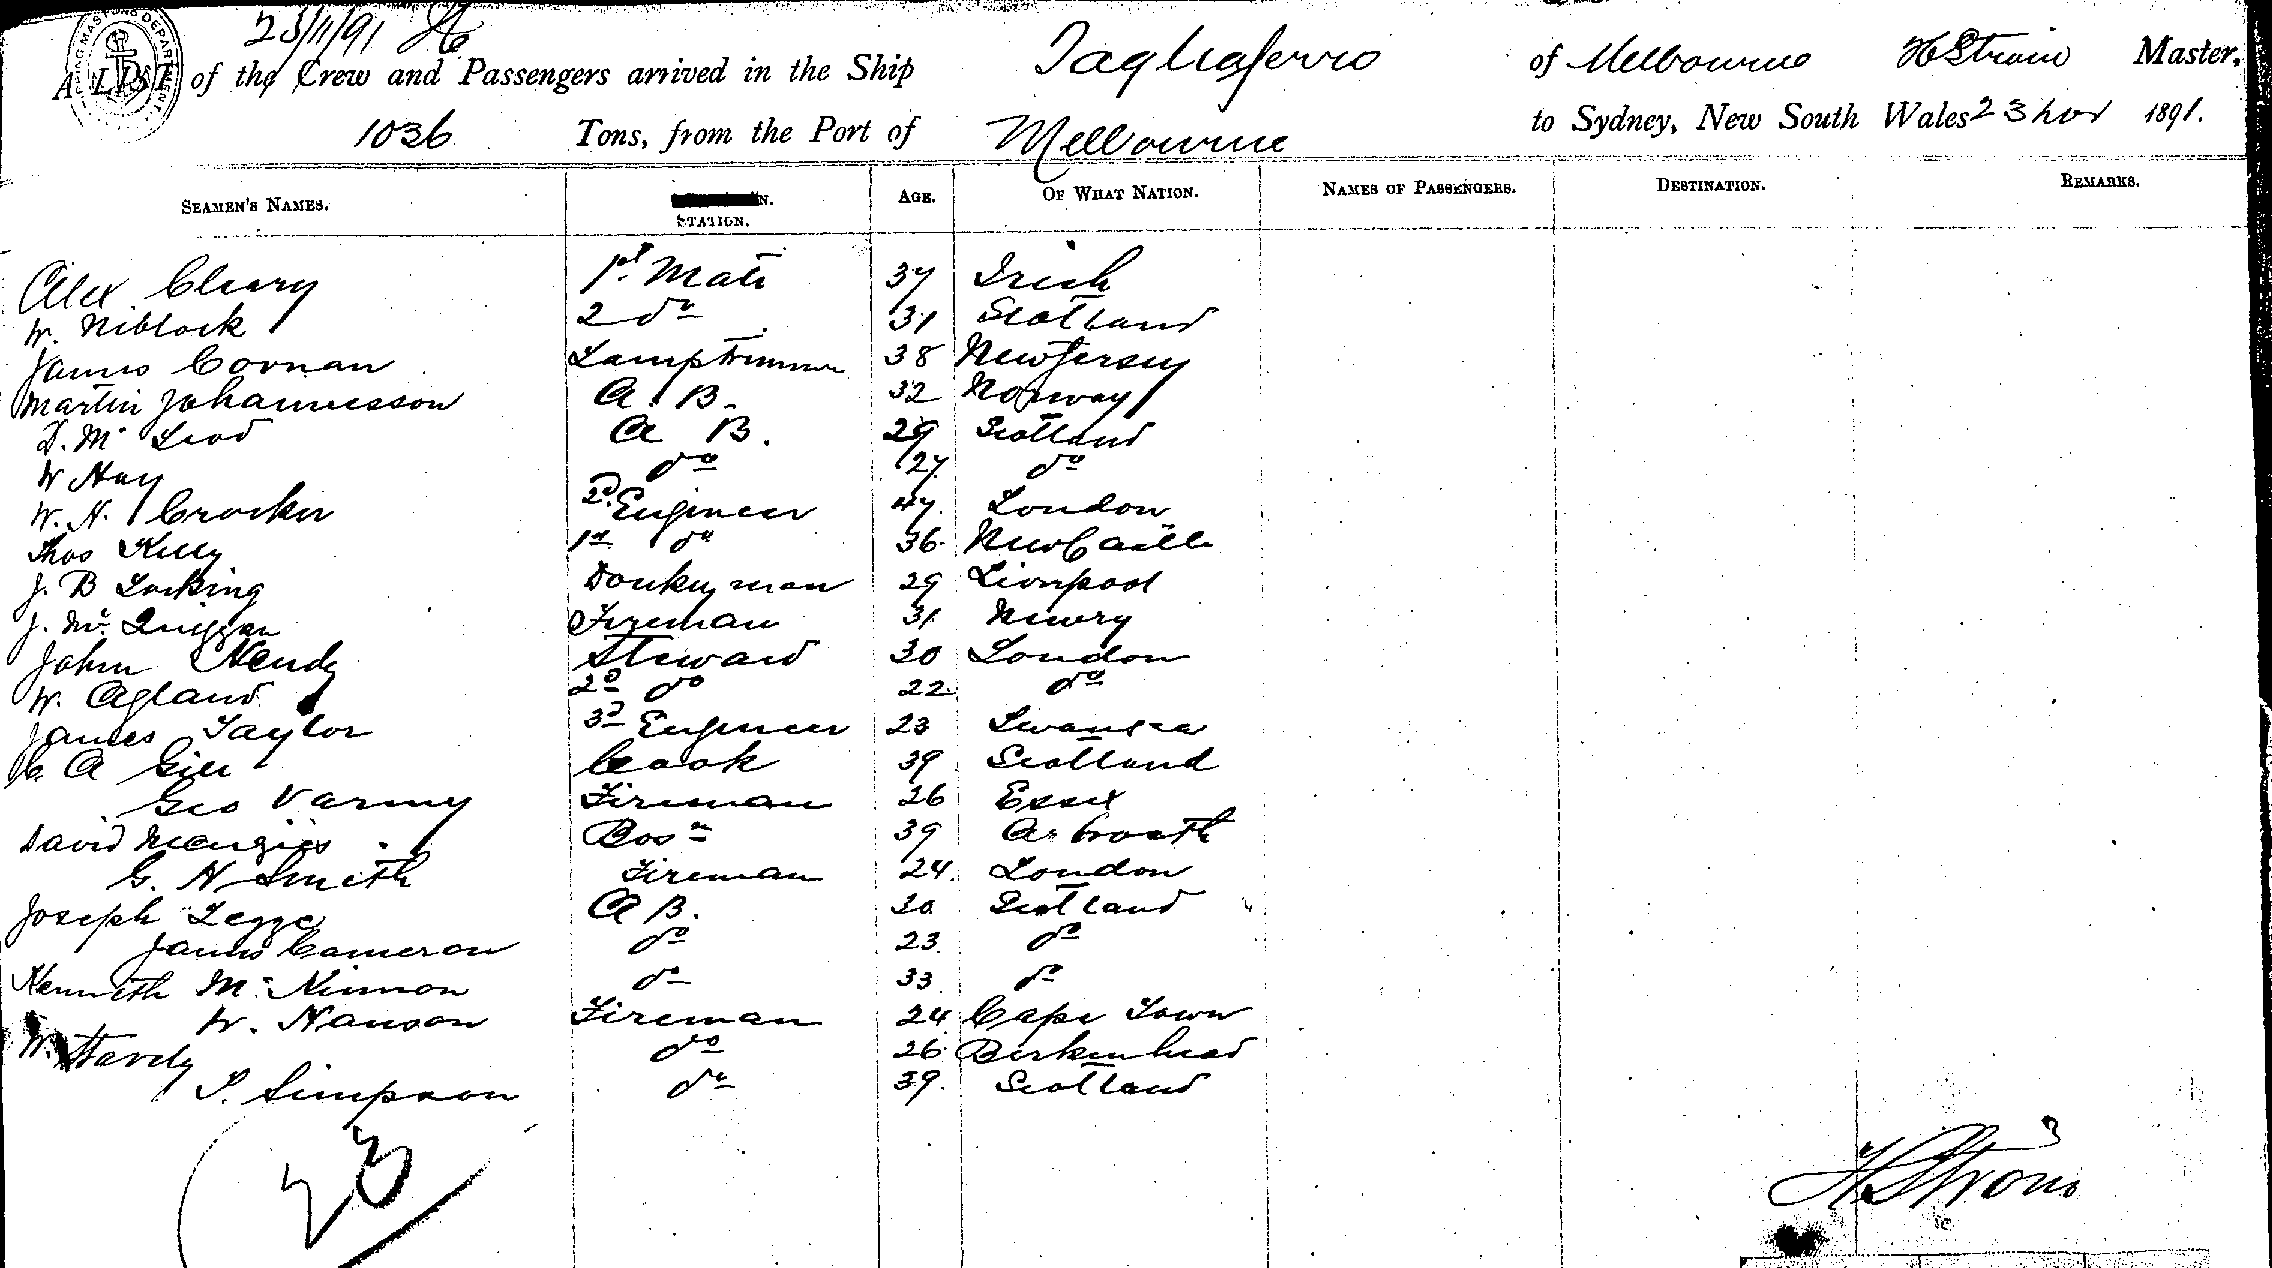 23/11/91
SHIPPING MASTERS DEPARTMENT
A LIST of the Crew and Passengers arrived in the Ship Tagliaferro of Melbourne H Strom Master,
1036 Tons, from the Port of Melbourne to Sydney, New South Wales 23 Nov 1891.
SEAMEN'S NAMES. STATION. AGE. OF WHAT NATION. NAMES OF PASSENGERS. DESTINATION. REMARKS.
Alex Cleary 1st Mate 37 Irish
W. Niblock 2 do 31 Scotland
James Coonan Lamptrimmer 38 New Jersey
Martin Johannesson A. B. 32 Norway
D. Mc Leod A B. 29 Scotland
W Hay do 27 do
W. H. Crocker 2d Engineer 47 London
Thos Kelly 1st do 36 NewCastle
J. B Locking Donkeyman 29 Liverpool
J. Mc Quiggan Fireman 31 Newry
John Hendy Steward 30 London
W. Agland 2d do 22 do
James Taylor 3d Engineer 23 Swansea
C. A Giles Cook 39 Scotland
Geo Varney Fireman 26 Essex
David Menzies Bosn 39 Arbroath
G. H Smith Fireman 24 London
Joseph Legge A B. 30 Scotland
James Cameron do 23 do
Kenneth Mc Kinnon do 33 do
W. Hanson Fireman 24 Cape Town
W. Hardy do 26 Birkenhead
S. Simpson do 39. Scotland
23
H Strom